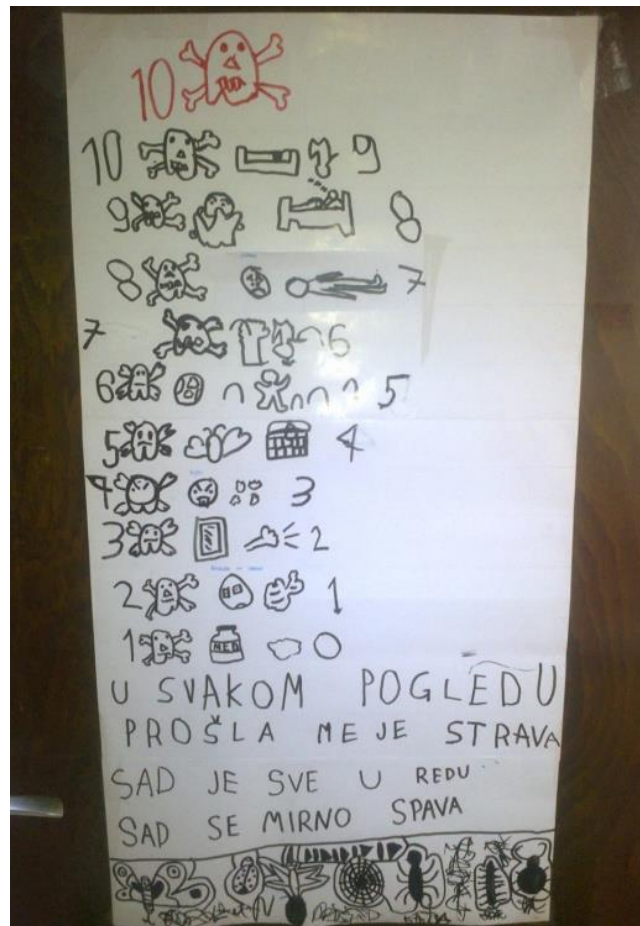 10
10 9
9 8
8 7
7 6
6 5
5 4
4 3
3 2
2 1
1 MED 0
U SVAKOM POGLEDU
PROŠLA ME JE STRAVA
SAD JE SVE U REDU
SAD SE MIRNO SPAVA